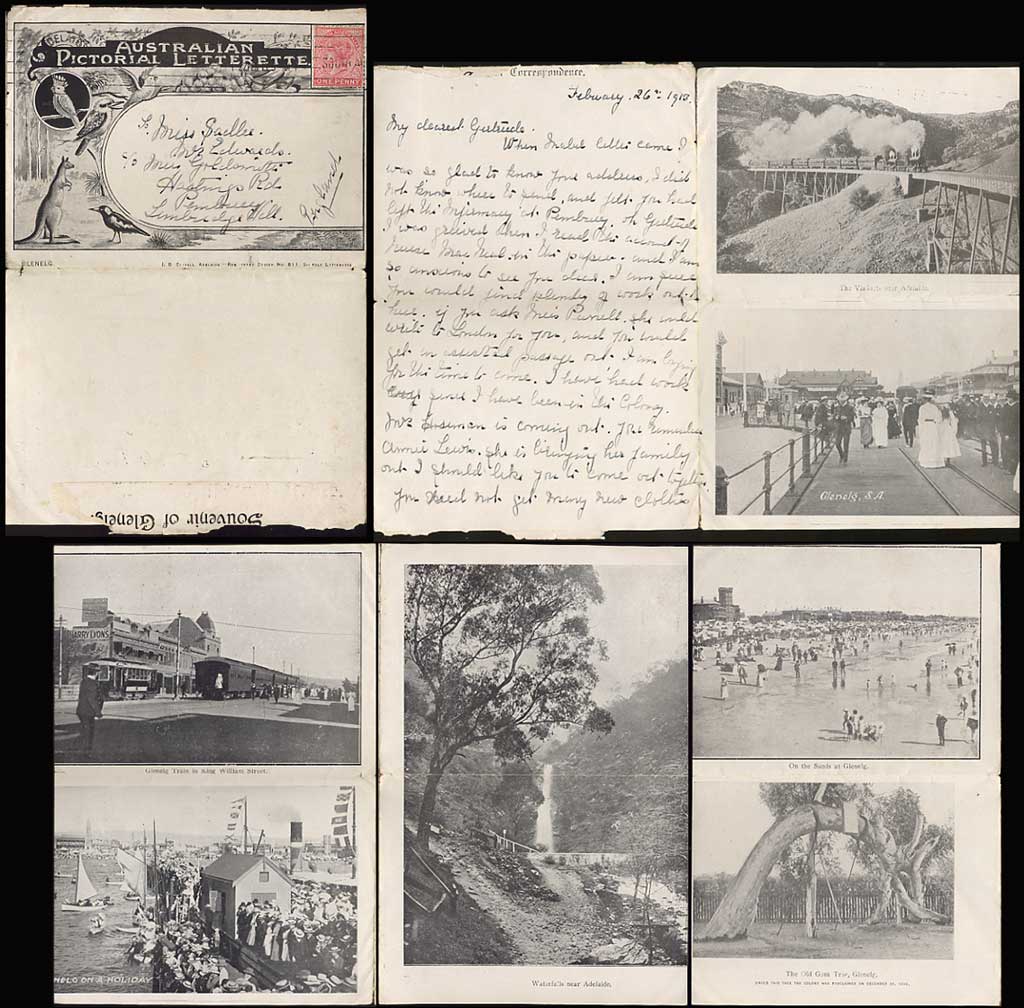 AUSTRALIAN
PICTORIAL LETTERETTE
ONE PENNY
To Miss Saellie.
Mrs Edwards.
Miss Goldsmith
Hastings Rd
Pembury
England
GLENELG
Souvenir of Glenelg.
Correspondence.
February. 26th 1913.
My dearest Gertrude.
When Mabel letter came I
was so glad to know your address, I did
not know where to send, and felt you had
left the Infirmary at Pembury oh Gertrude
I was grieved when I read the account of
Nurse in the paper. and I am
so anxious to see you dear. I am sure
you would find plenty of work out
here. if you ask Miss Purnell. she would
write to London for you, and you would
get an assisted passage out. I am
for the time to come. I have had work
since I have been in the Colony.
Mrs is coming out. you remember
Annie Lewis. she is bringing her family
out I should like you to come out together
you need not get many new clothes
The Viaducts near Adelaide.
Glenelg, S.A.
HARRY LYONS
Glenelg Train in King William Street.
NELG ON A HOLIDAY
Waterfalls near Adelaide.
On the Sands at Glenelg.
The Old Gum Tree, Glenelg.
UNDER THIS TREE THE COLONY WAS PROCLAIMED ON DECEMBER 28,